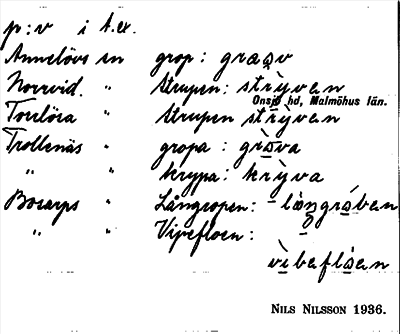 p:v i t.ex.
Annelövs sn grop: grǡəv
Norrvid. " strupen: strỳvan
Onsjö hd, Malmöhus län.
Torlösa " strupen strỳvan
Trollenäs " gropa: grǡva
" " krypa: krỳva
Bosarps " Långropen: lǡngrǡben
" " Vipefloen:
vìbeflǡen
NILS NILSSON 1936.